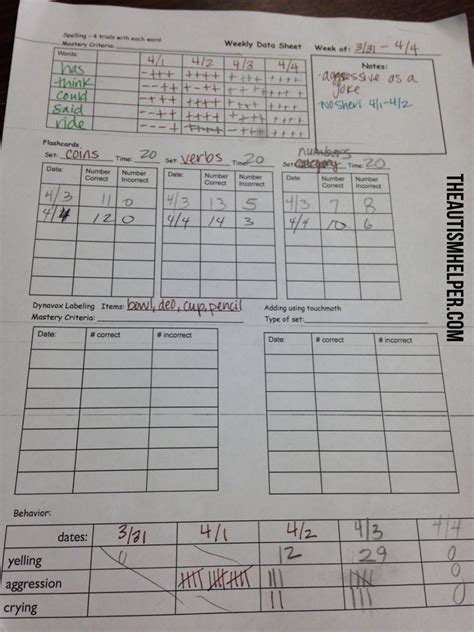 Spelling – 4 trials with each word
Mastery Criteria: Weekly Data Sheet Week of: 3/31 - 4/4
Words 4/1 4/2 4/3 4/4
has
think
could
said
ride
Notes:
·aggressive as a joke
·No sheri 4/1-4/2
Flashcards
Set: coins Time: 20 Set: verbs Time: 20 Set: category numbers Time: 20
Date: Number Correct Number Incorrect Date: Number Correct Number Incorrect Date: Number Correct Number Incorrect
4/3 11 0 4/3 13 5 4/3 7 8
4/4 12 0 4/4 14 3 4/4 10 6
Dynavox Labeling Items: bowl, cup, pencil Adding using touchmath
Mastery Criteria: Type of set:
Date: # correct # incorrect Date: # correct # incorrect
Behavior:
dates: 3/31 4/1 4/2 4/3 4/4
yelling 0 12 29 0
aggression 0
crying 0
THEAUTISMHELPER.COM